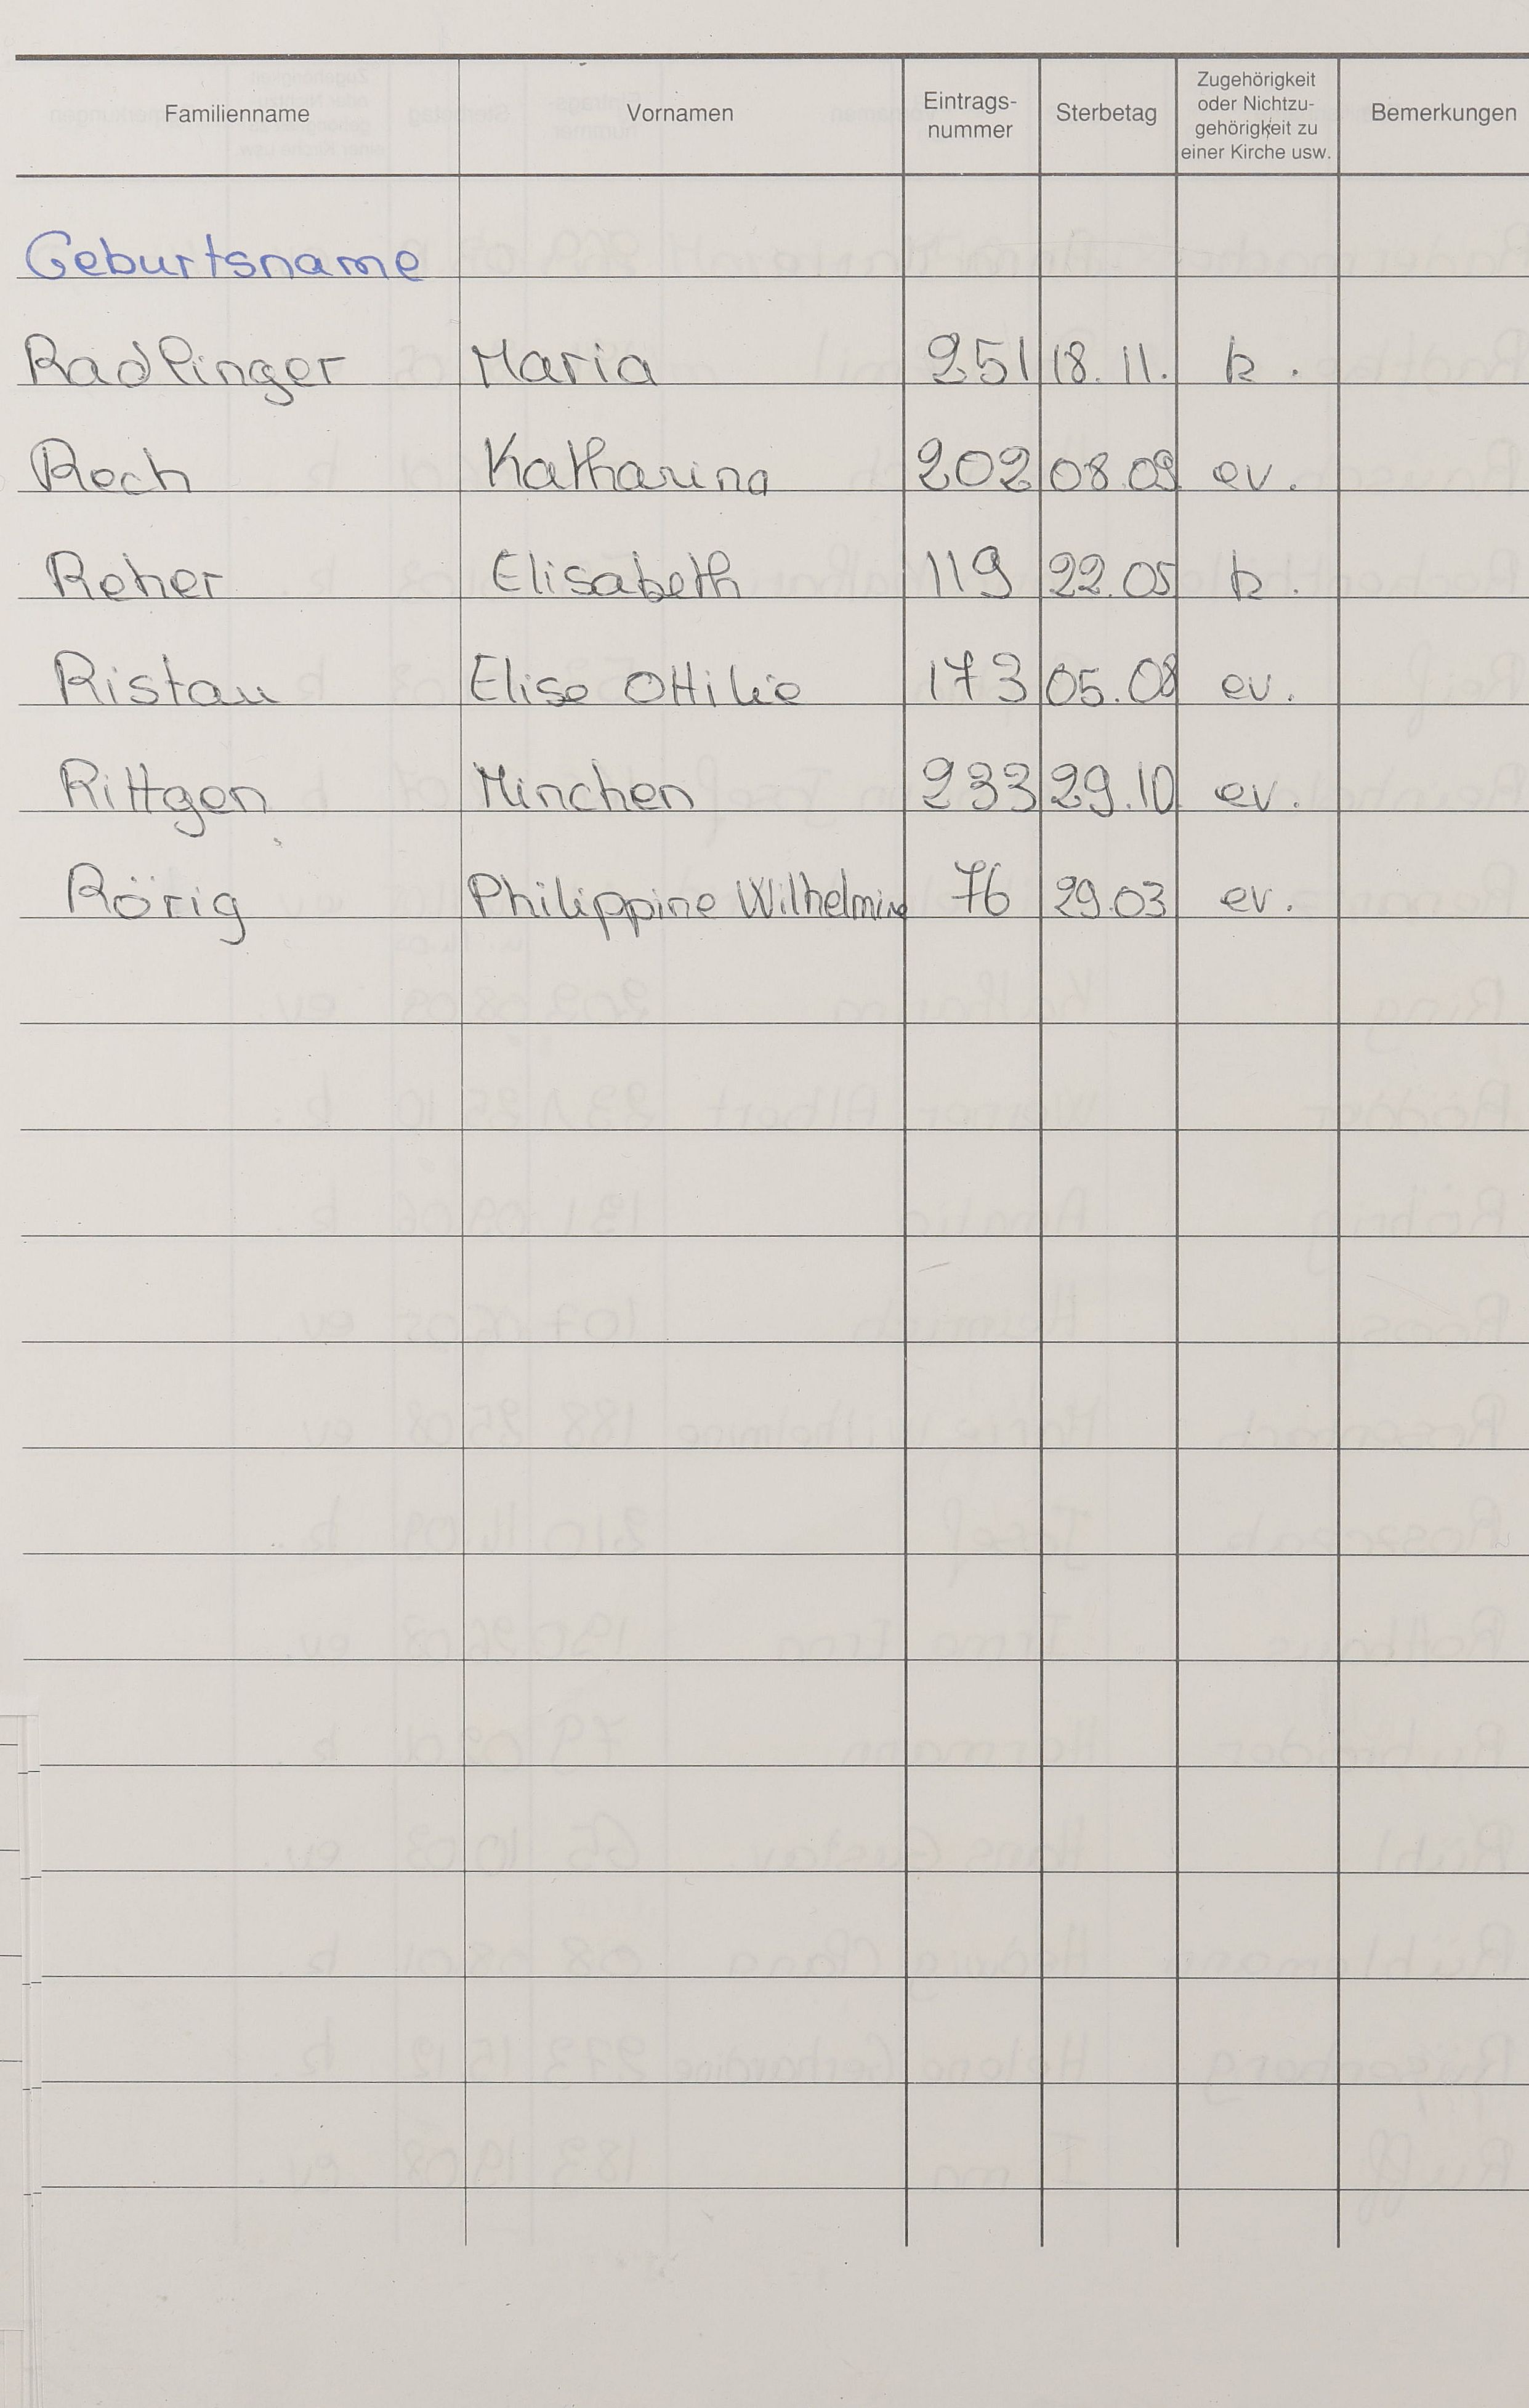 Familienname Vornamen Eintrags-nummer Sterbetag Zugehörigkeit oder Nichtzu-gehörigkeit zu einer Kirche usw. Bemerkungen
Geburtsname
Radlinger Maria 251 18. 11. k.
Rech Katharina 202 08.09 ev.
Reher Elisabeth 119 22.05 k.
Ristau Elise Ottilie 173 05.08 ev.
Rittgen Minchen 233 29.10. ev.
Rörig Philippine Wilhelmine 76 29.03 ev.